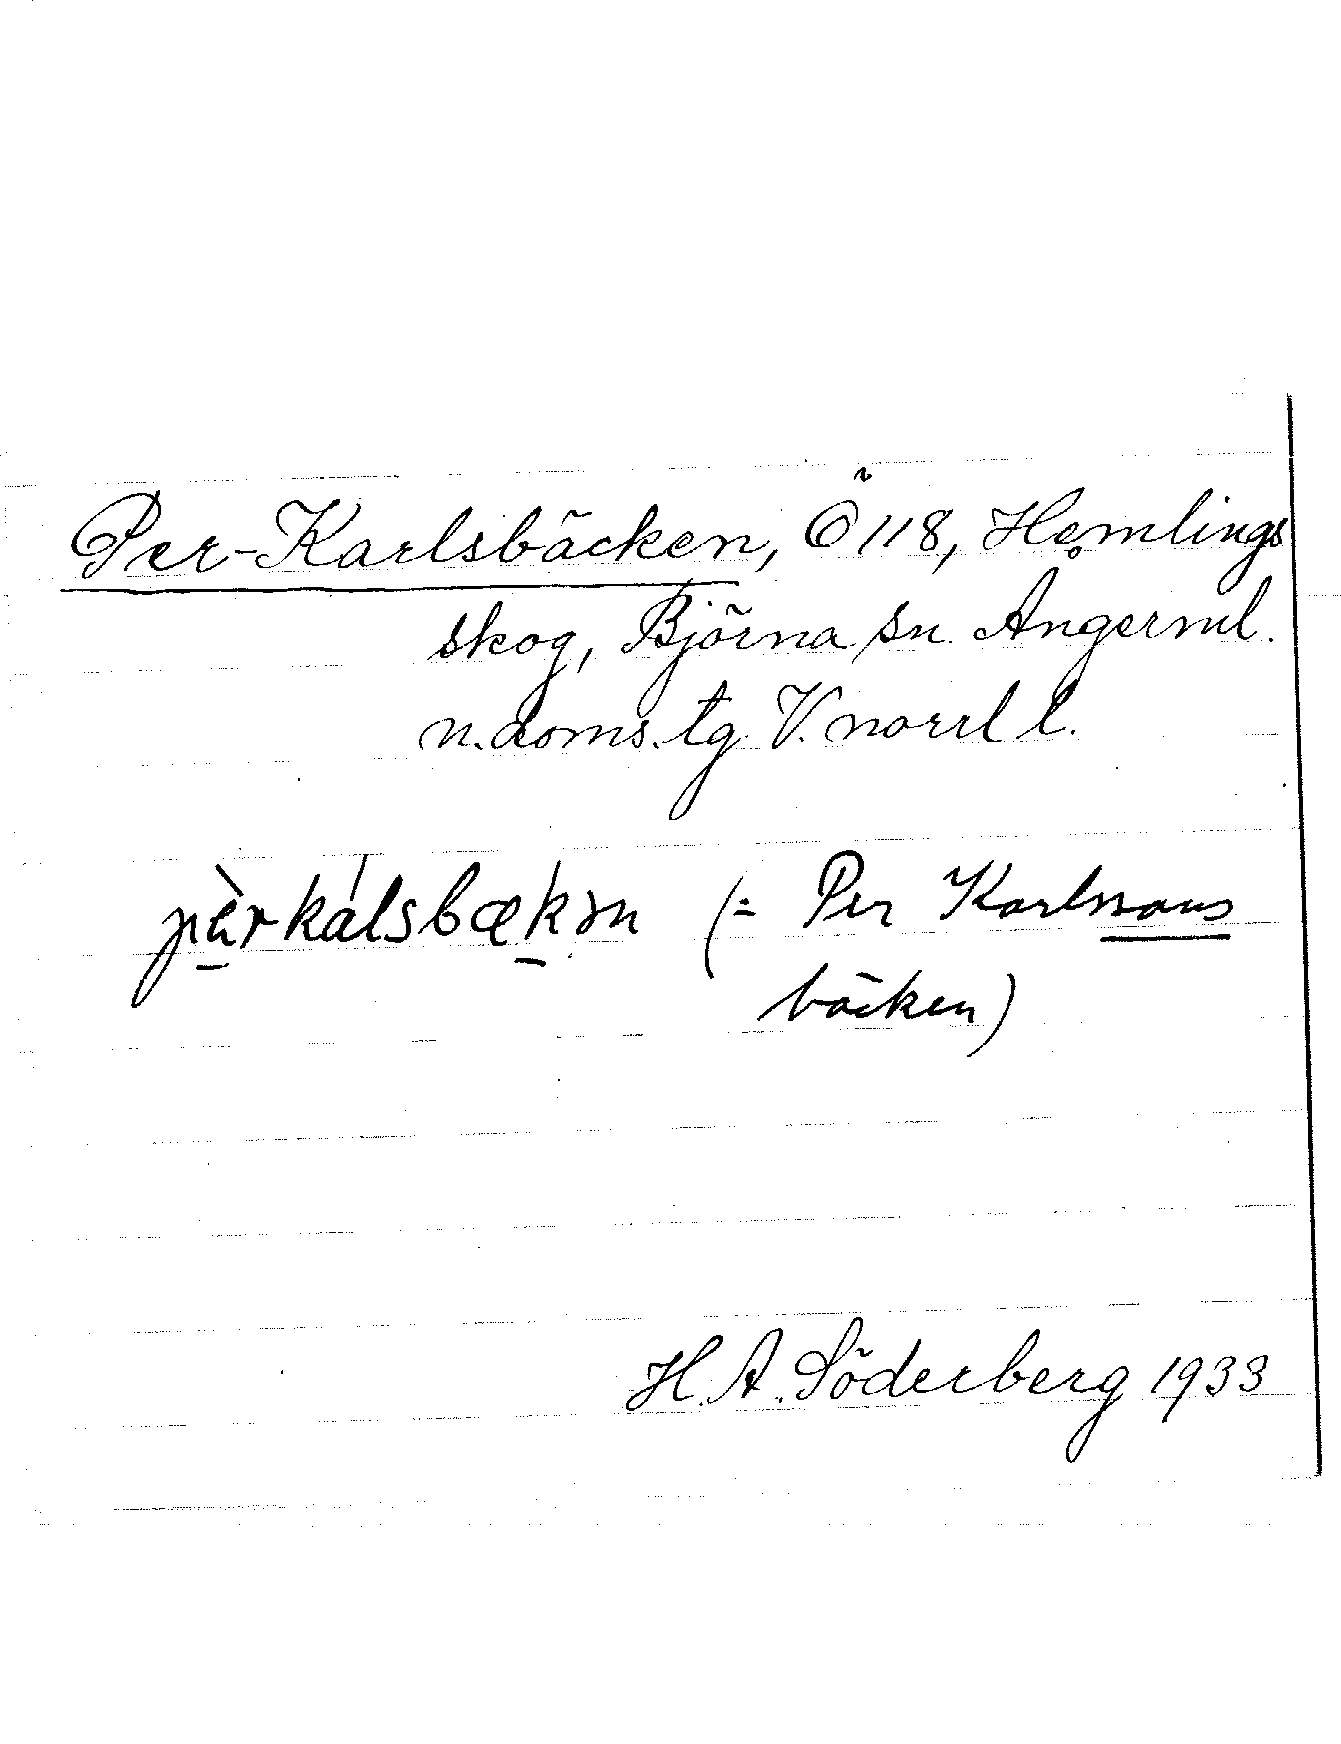 Per-Karlsbäcken, Ö 118, Hemlings
skog, Björna sn. Ångerml.
n. doms. tg V. norrl l.
pèrkálsbækən (= Per Karlssons
bäcken)
H. A. Söderberg 1933